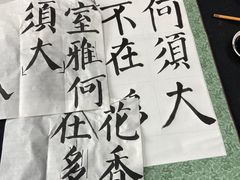 何須大
不在
花香
室雅何
在多
須大